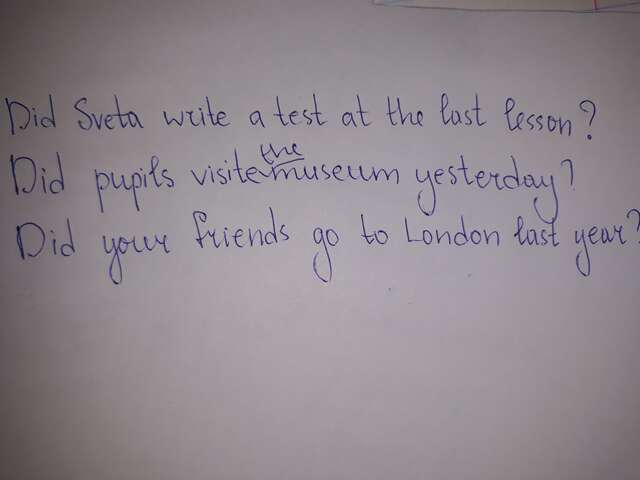 Did Sveta write a test at the last lesson?
Did pupils visite the museum yesterday?
Did your friends go to London last year?